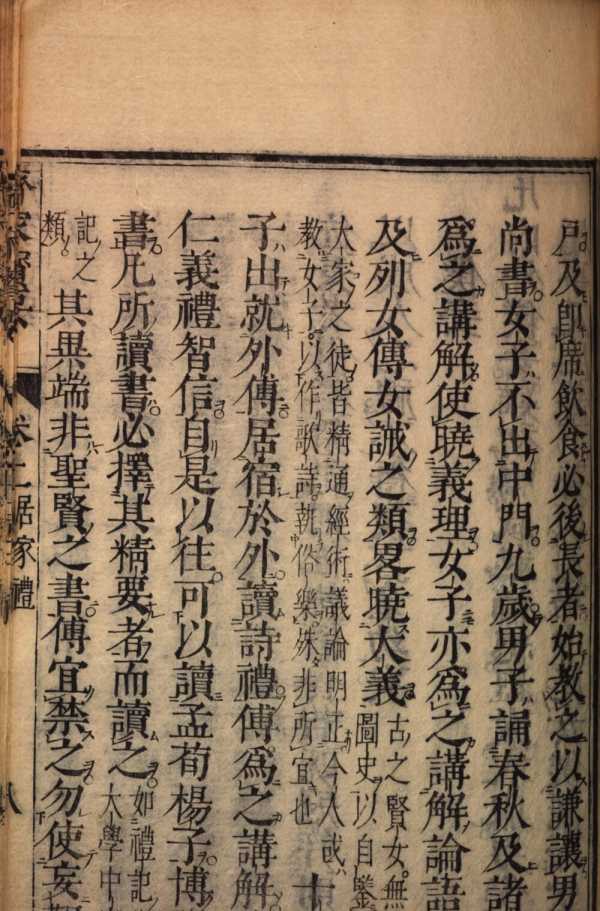 戸及卽席飲食必後長者始教之以謙讓男
尚書女子不出中門九歲男子誦春秋及諸
爲之講解使曉義理女子亦爲之講解論語
及列女傳女誡之類畧曉大義
古之賢女無
圖史以自鑒
大家之徒皆精通經術議論明正今人或
教女子以作歌詩執俗樂殊非所宜也
十
子出就外傅居宿於外讀詩禮傅爲之講解
仁義禮智信自是以往可以讀孟荀楊子博
書凡所讀書必擇其精要者而讀之
如禮記
大學中
記之
類
其異端非聖賢之書傅宜禁之勿使妄
卷二居家禮
八